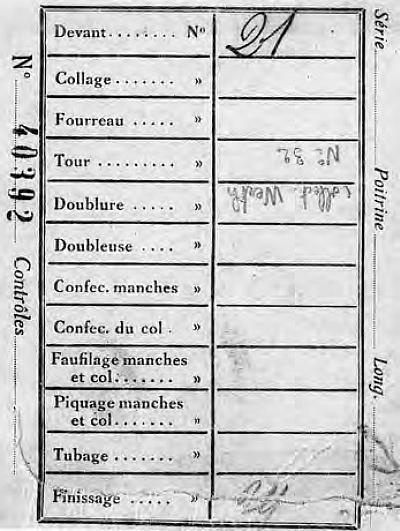 Devant........ Nº 21
Collage....... »
Fourreau ..... »
Tour ......... » Nº 32
Doublure ..... » Collect. Werth
Doubleuse .... »
Confec. manches »
Confec. du col . »
Faufilage manches
et col........ »
Piquage manches
et col....... »
Tubage ....... »
Finissage ..... »
Nº 40392 Contrôles
Série Poitrine Long.